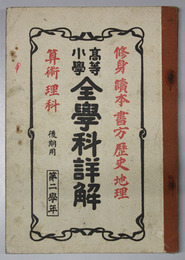 修身 讀本 書方 歷史 地理
算術 理科
高等
小學
全學科詳解
後期用
第二學年